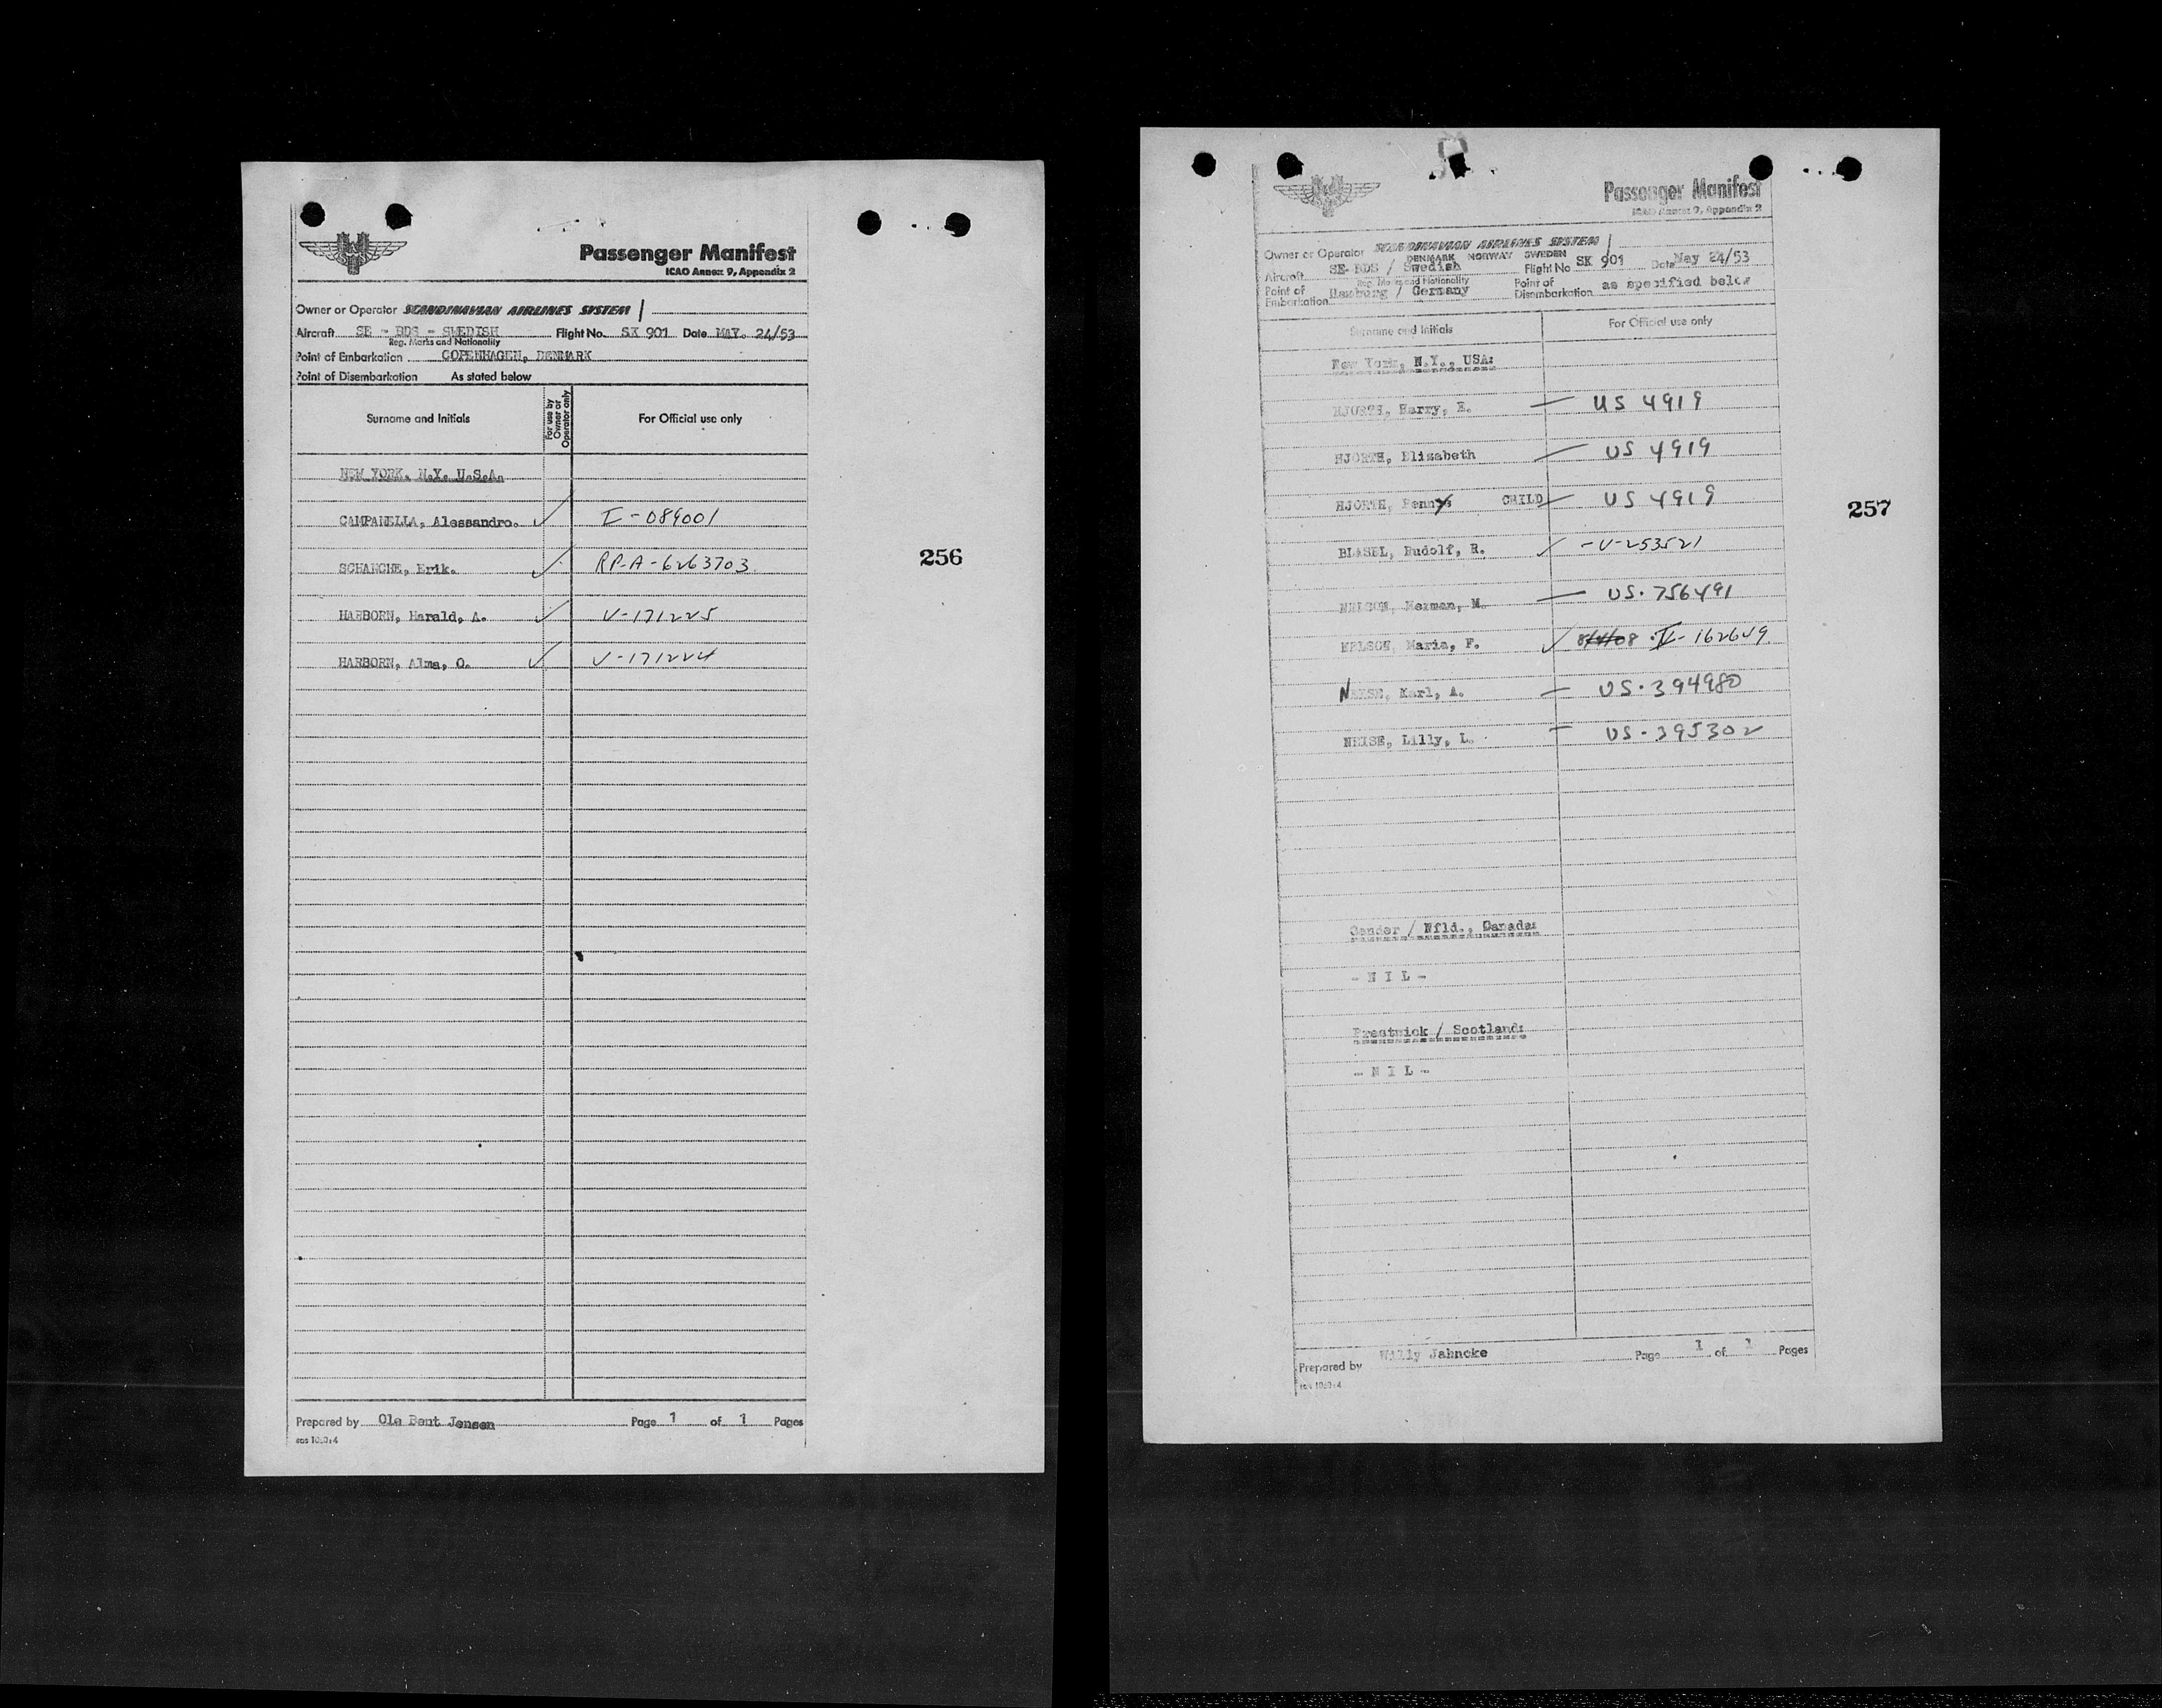 Passenger Manifest
ICAO Annex 9, Appendix 2
Owner or Operator SCANDINAVIAN AIRLINES SYSTEM
Aircraft SE - BDS - SWEDISH Flight No. SK 901 Date MAY. 24/53
Reg. Marks and Nationality
Point of Embarkation COPENHAGEN, DENMARK
Point of Disembarkation As stated below
Surname and Initials For use by Owner or Operator only For Official use only
NEW YORK. N.Y. U.S.A.
CAMPANELLA, Alessandro. I-089001
SCHANCHE, Erik. RP-A-6263703
HARBORN, Harald, A. V-171225
HARBORN, Alma, O. V-171224
256
Prepared by Ole Bent Jensen Page 1 of 1 Pages
sas 1030:4
Passenger Manifest
ICAO Annex 9, Appendix 2
Owner or Operator SCANDINAVIAN AIRLINES SYSTEM
DENMARK NORWAY SWEDEN
Aircraft SE-BDS / Swedish Flight No SK 901 Date May 24/53
Reg. Marks and Nationality
Point of Embarkation Hamburg / Germany Point of Disembarkation as specified below
Surname and Initials For Official use only
New York, N.Y., USA:
HJORTH, Harry, E. US 4919
HJORTH, Elisabeth US 4919
HJORTH, Penny CHILD US 4919
BLASEL, Rudolf, R. -V-253521
NELSON, Herman, M. US-756491
NELSON, Maria, F. V-162649
NEISE, Karl, A. US-394980
NEISE, Lilly, L. US-395302
257
Gander / Nfld., Canada:
- N I L -
Prestwick / Scotland:
- N I L -
Prepared by Willy Jahncke Page 1 of 1 Pages
sas 1030:4